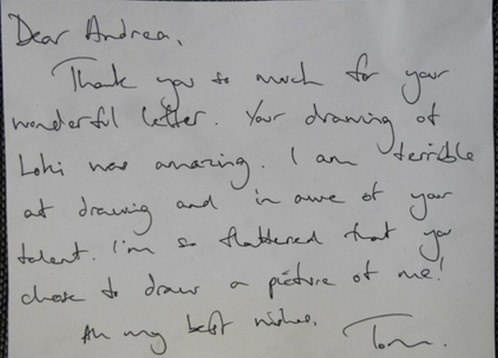 Dear Andrea,
Thank you so much for your
wonderful letter. Your drawing of
Loki was amazing. I am terrible
at drawing and in awe of your
talent. I'm so flattered that you
chose to draw a picture of me!
All my best wishes,
Tom.